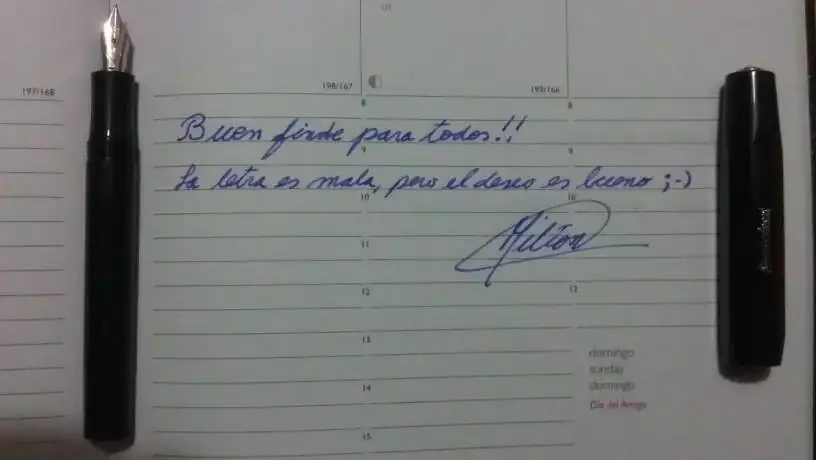 197/168
198/167
199/166
8
8
Buen finde para todos!!
9
9
La letra es mala, pero el deseo es bueno ;-)
10
10
Milton
11
12
12
13
domingo
sunday
domingo
14
Día del Amigo
15